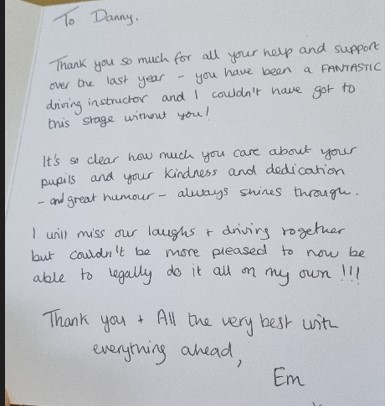 To Danny,
Thank you so much for all your help and support
over the last year - you have been a FANTASTIC
driving instructor and I couldn't have got to
this stage without you!
It's so clear how much you care about your
pupils and your kindness and dedication
- and great humour - always shines through.
I will miss our laughs + driving together
but couldn't be more pleased to now be
able to legally do it all on my own !!!
Thank you + All the very best with
everything ahead,
Em